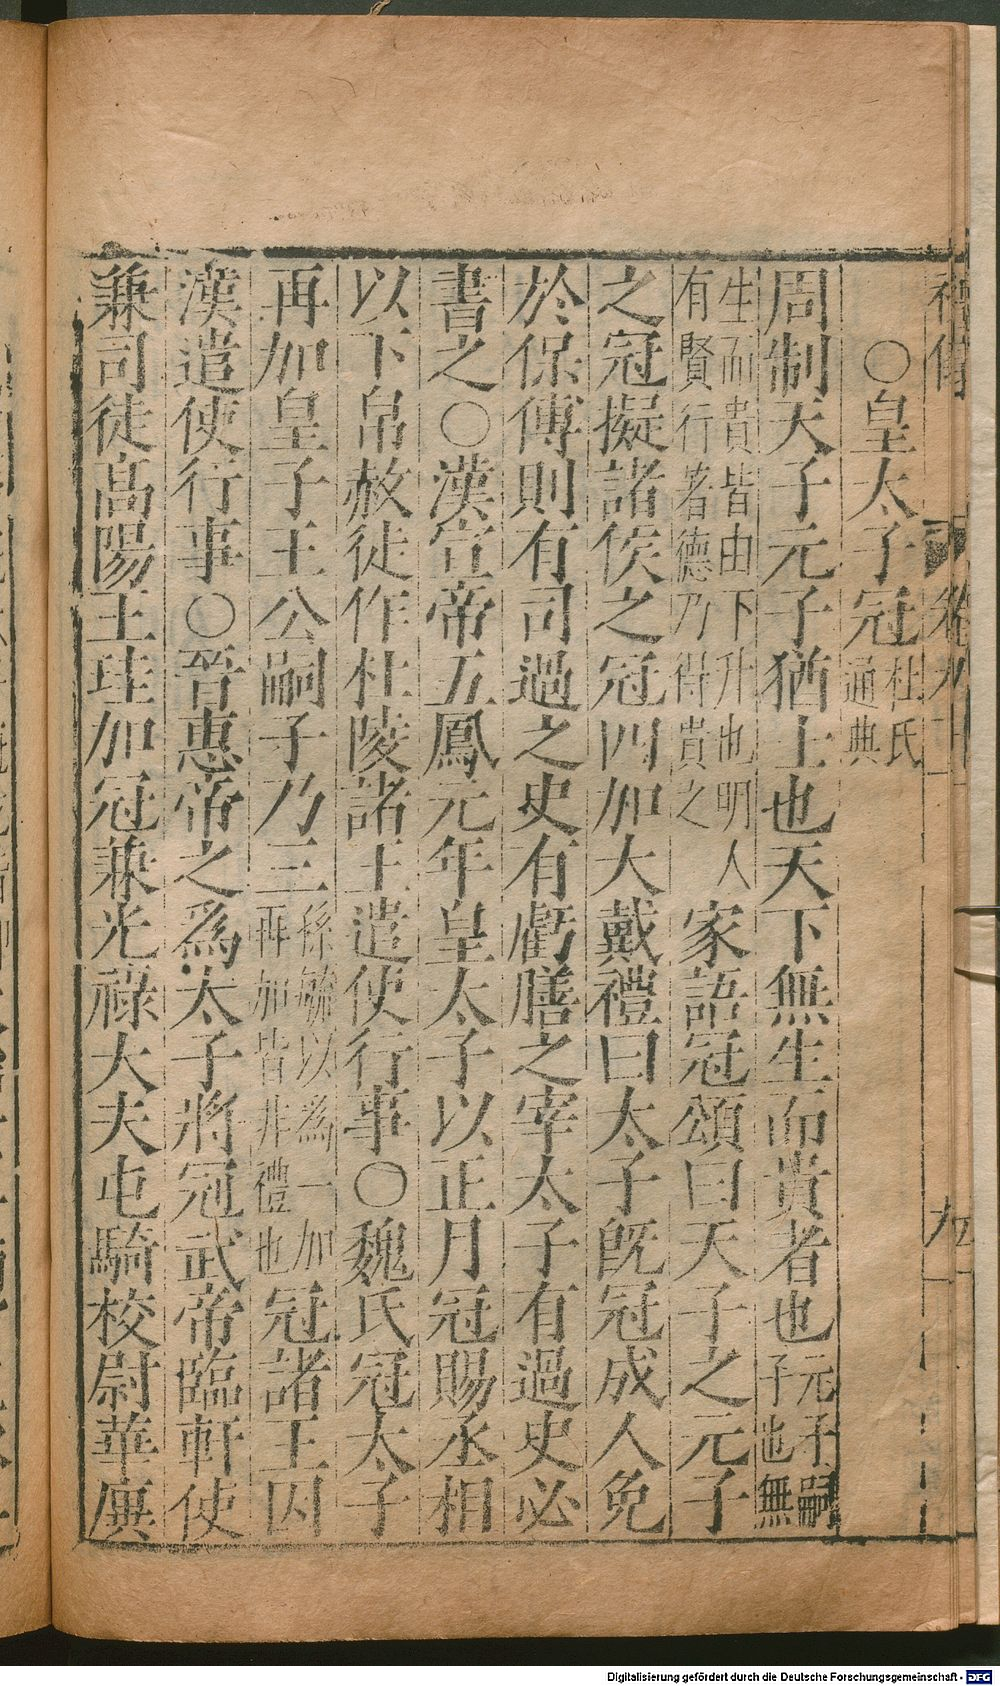 ○皇太子冠杜氏通典
周制天子元子猶士也天下無生而貴者也元子嗣子也無
生而貴皆由下升也明人有賢行著德乃得貴之家語冠頌曰天子之元子
之冠擬諸侯之冠四加大戴禮曰太子旣冠成人免
於保傅則有司過之史有虧膳之宰太子有過史必
書之○漢宣帝五鳳元年皇太子以正月冠賜丞相
以下帛赦徒作杜陵諸王遣使行事○魏氏冠太子
再加皇子王公嗣子乃三孫毓以爲一加再加皆非禮也冠諸王因
漢遣使行事○晉惠帝之爲太子將冠武帝臨軒使
兼司徒高陽王珪加冠兼光祿大夫屯騎校尉華廙
Digitalisierung gefördert durch die Deutsche Forschungsgemeinschaft - DFG